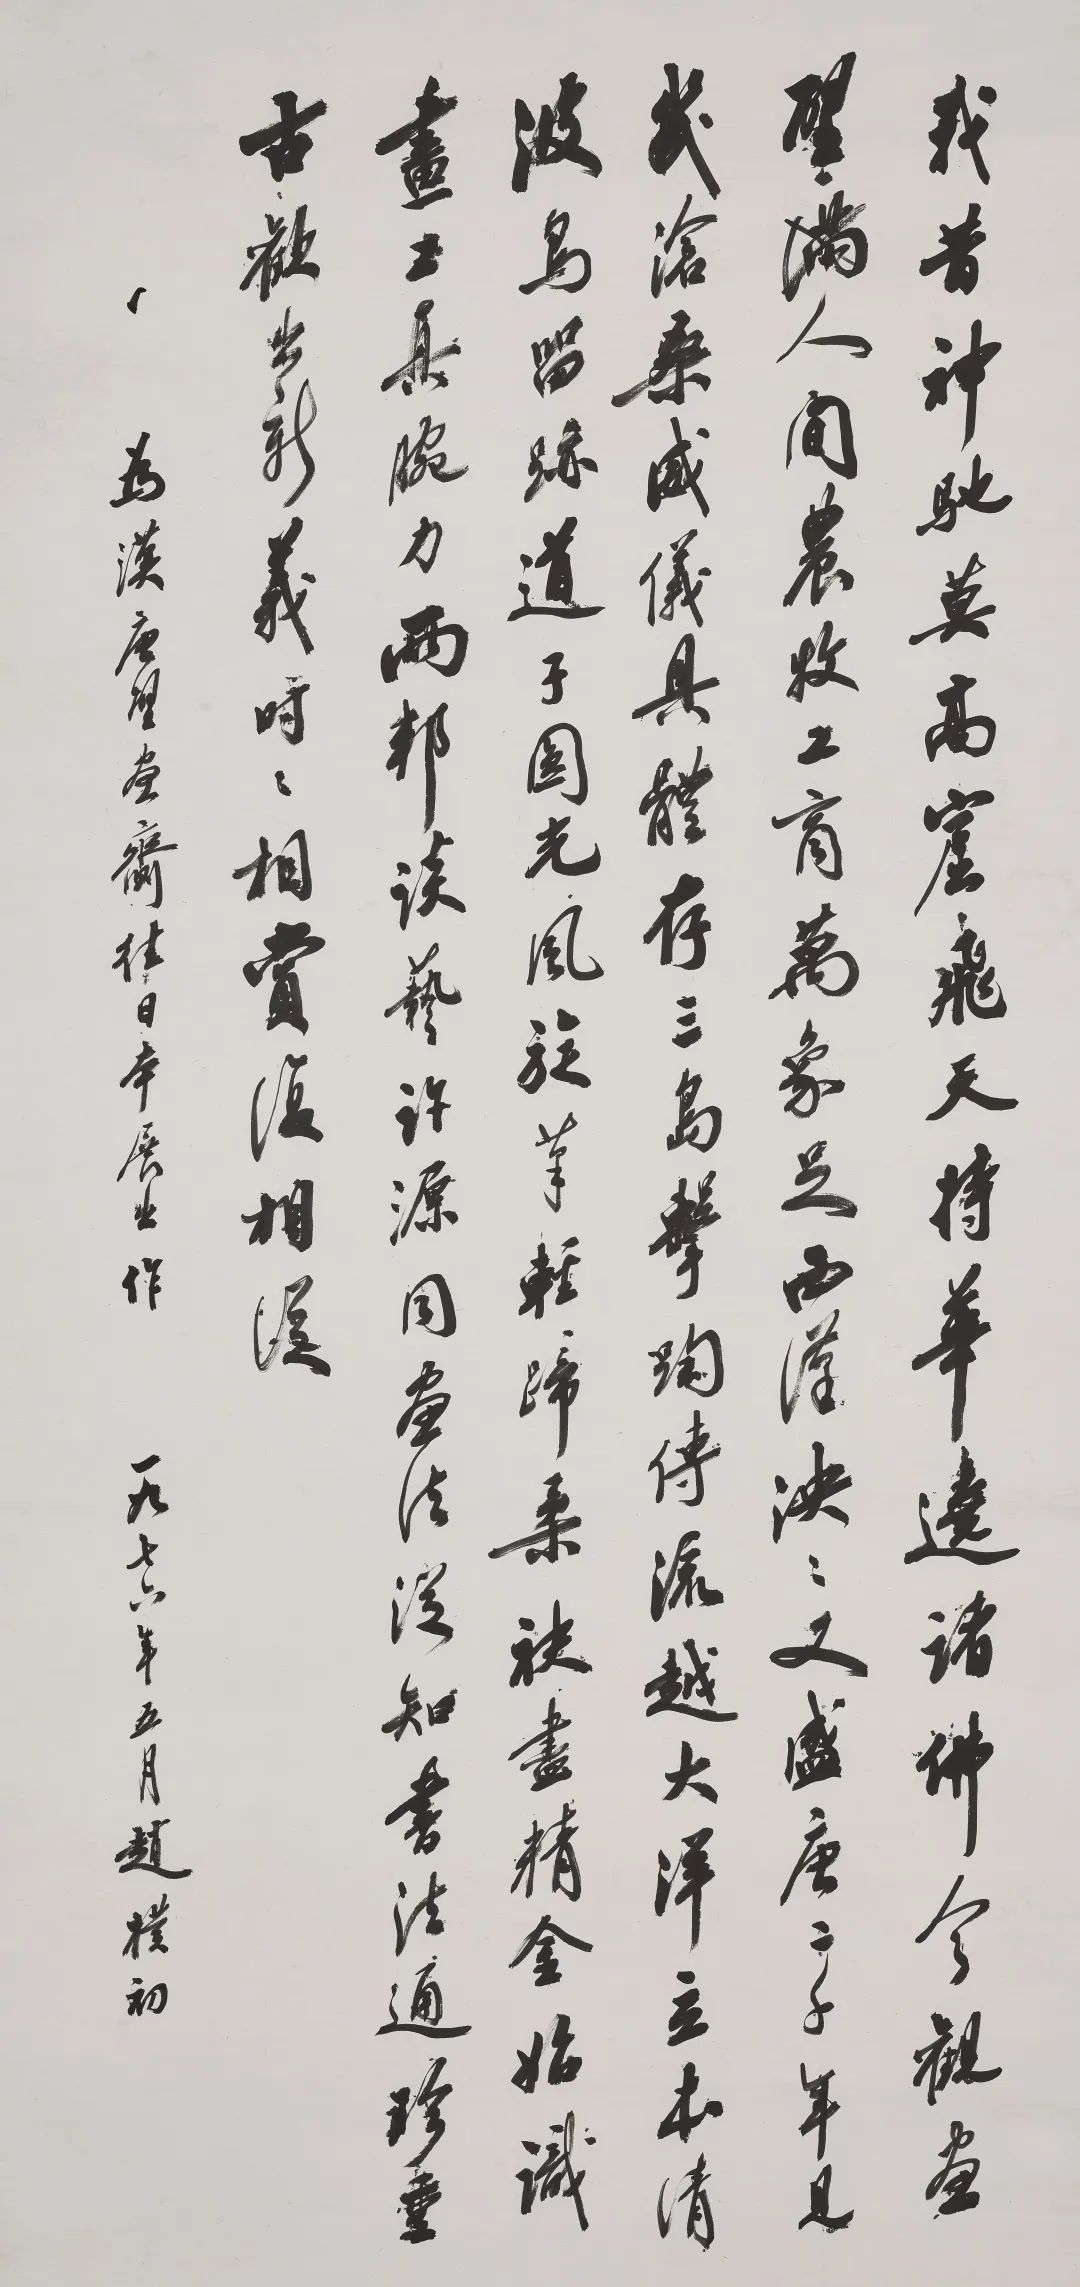 我昔神馳莫高窟飛天持華遶諸佛今觀画
壁滿人間農牧工商萬象足西漢泱〻又盛唐二千年見
幾滄桑威儀具體存三島擊鞠傳流越大洋立本清
波鳥留跡道子圓光風旋筆輕蹄柔袂盡精金始識
畫工具腕力兩邦談藝許源同画法從知書法通珍重
古歡出新義時〻相賞復相從
為漢唐壁画齎往日本展出作 一九七六年五月趙樸初